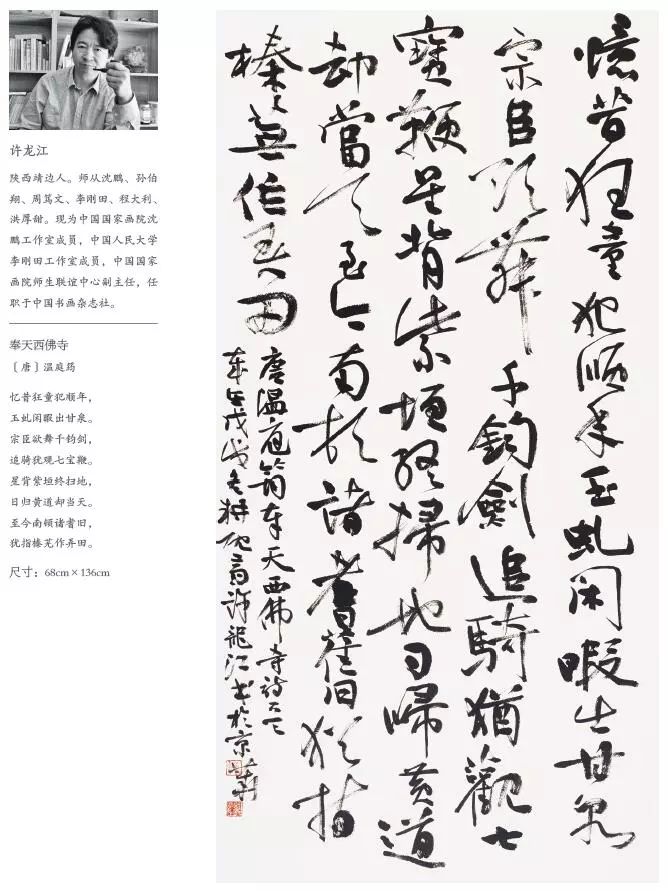 许龙江
陕西靖边人。师从沈鹏、孙伯
翔、周笃文、李刚田、程大利、
洪厚甜。现为中国国家画院沈
鹏工作室成员，中国人民大学
李刚田工作室成员，中国国家
画院师生联谊中心副主任，任
职于中国书画杂志社。
奉天西佛寺
〔唐〕温庭筠
忆昔狂童犯顺年，
玉虬闲暇出甘泉。
宗臣欲舞千钧剑，
追骑犹观七宝鞭。
星背紫垣终扫地，
日归黄道却当天。
至今南顿诸耆旧，
犹指榛芜作弄田。
尺寸：68cm×136cm
憶昔狂童犯順年玉虬闲暇出甘泉
宗臣欲舞千鈞劍追騎猶觀七
寶鞭星背紫垣終掃地日歸黃道
却當天至今南諸耆舊猶指
榛蕪作弄田
唐温庭筠奉天西佛寺詩
戊戌許龍江書於京華